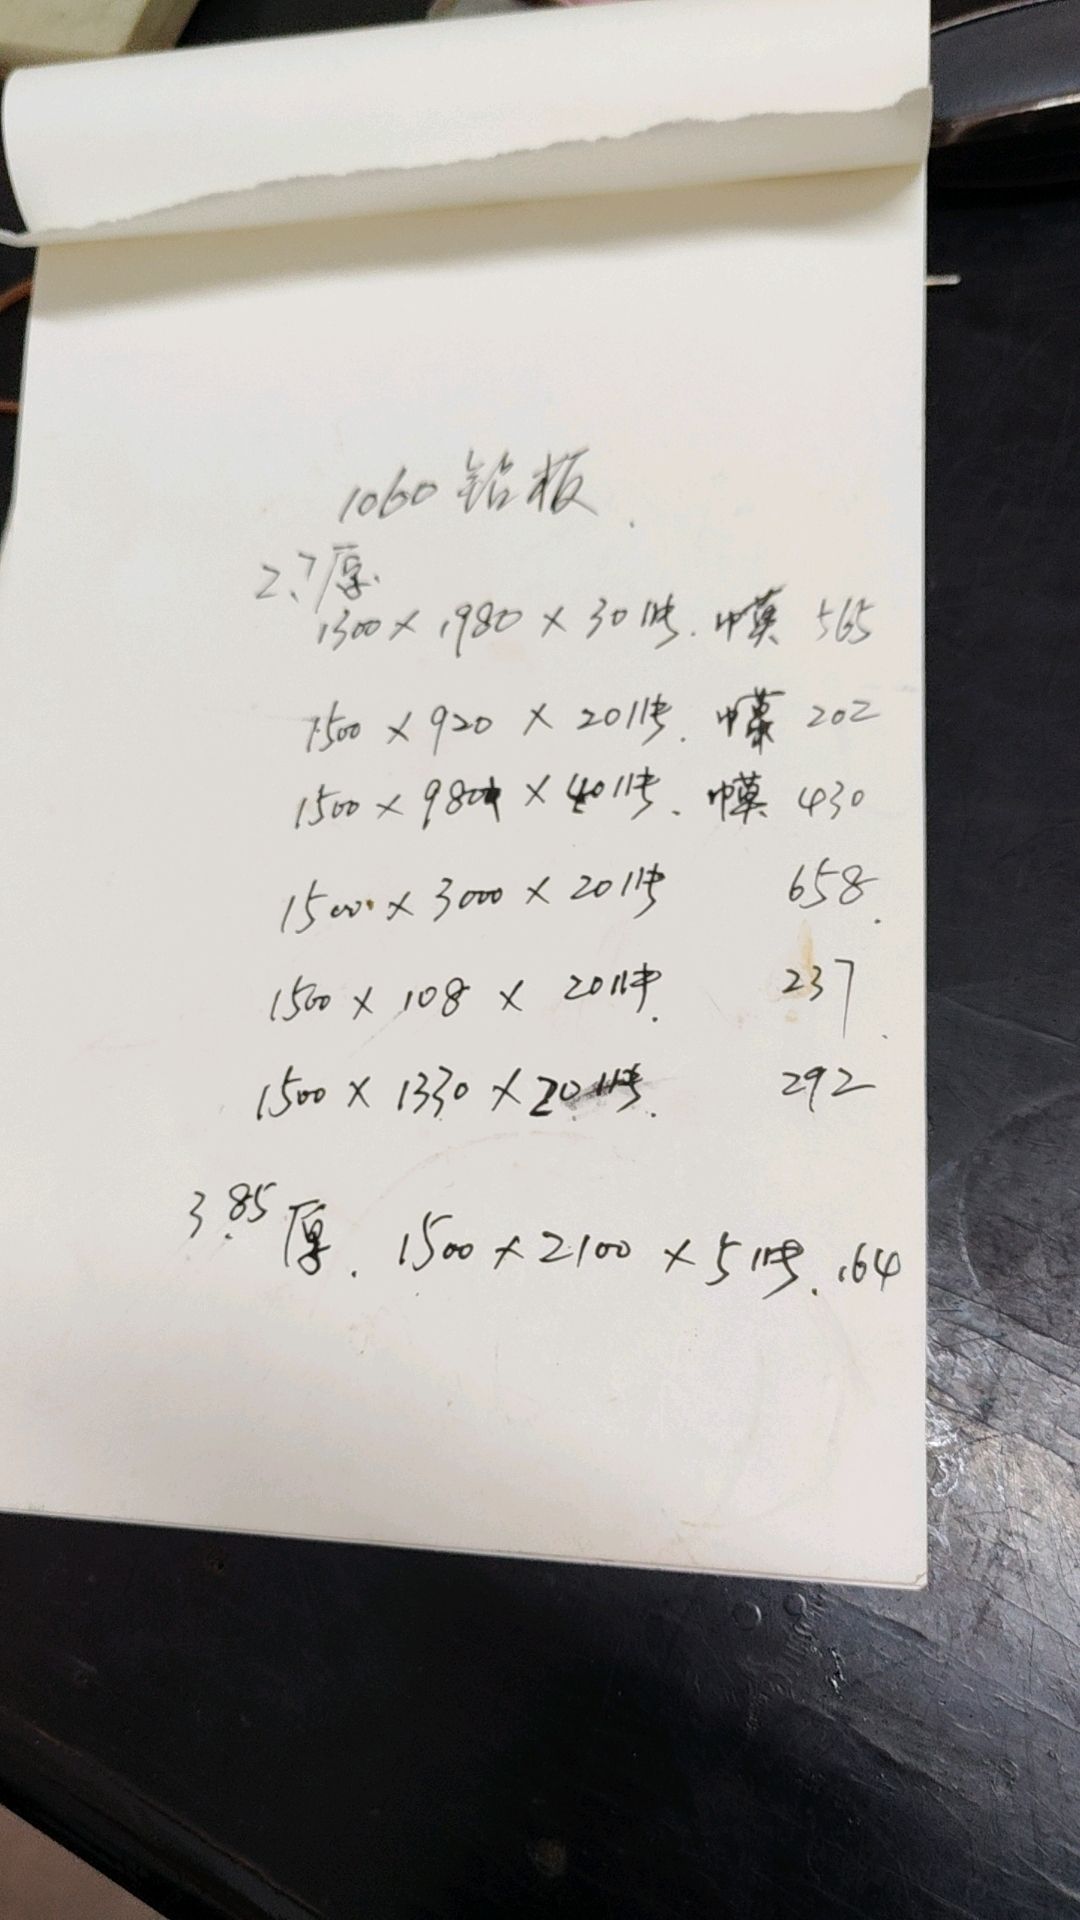 1060铝板.
2.7厚.
1300×1980×30件.巾莫 565
1500×920×20件.巾莫 202
1500×980×40件.巾莫 430
1500×3000×20件 658.
1500×108×20件. 237.
1500×1330×20件. 292
3.85厚.1500×2100×5件.164